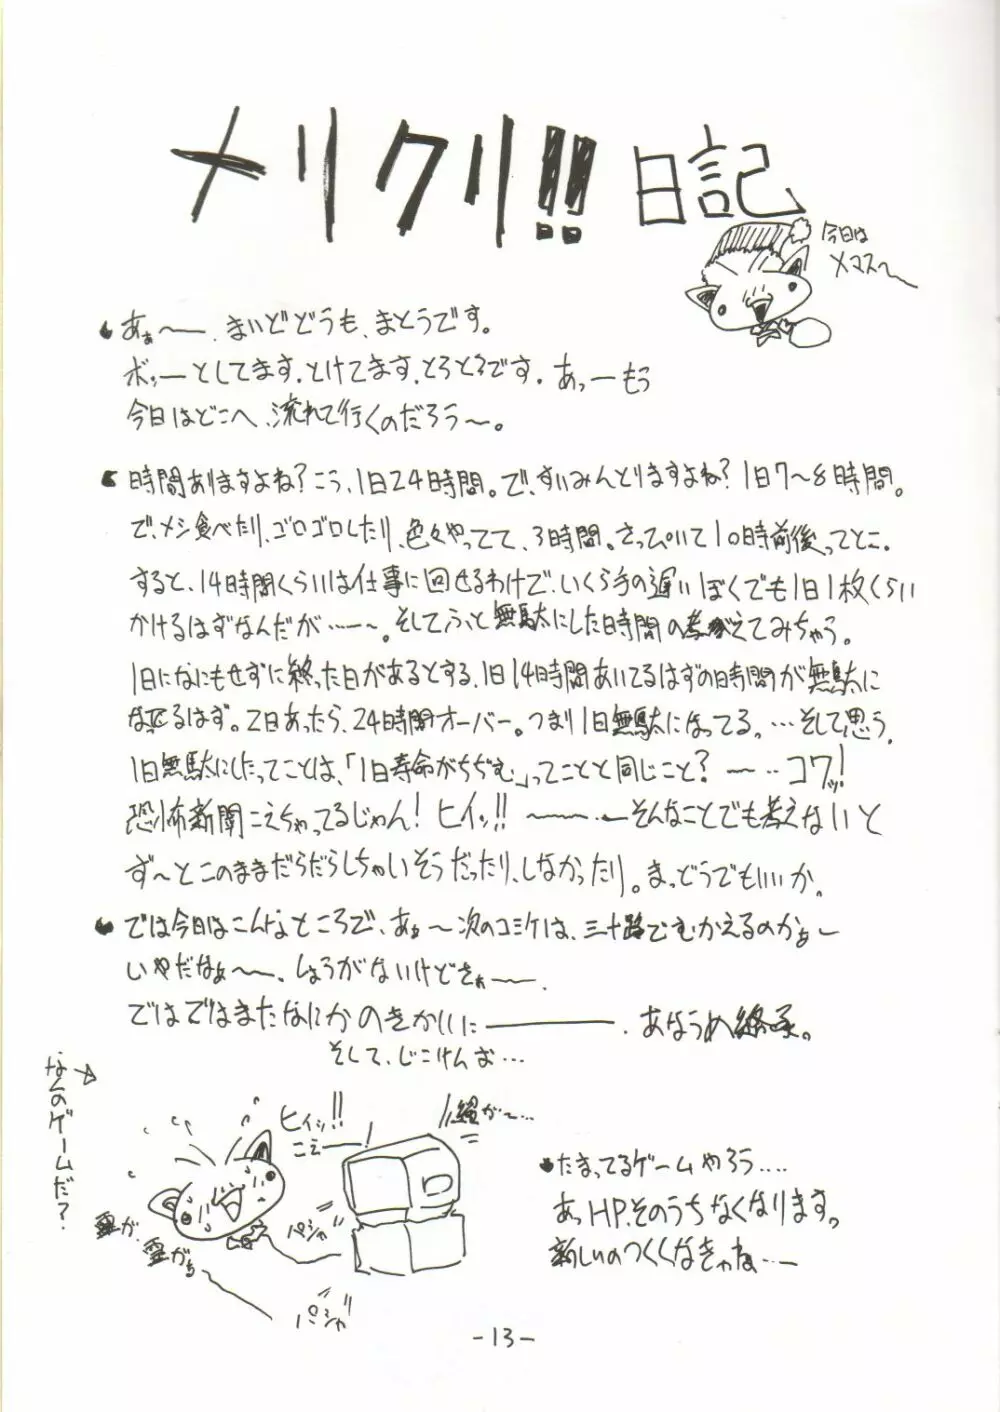 メリクリ!! 日記
今日は
メマス〜
あぁ〜〜、まいどどうも、まとうです。
ボッーとしてます。とけてます。とろとろです。あっーもう
今日はどこへ、流れて行くのだろう〜。
時間ありますよね?こう、1日24時間。で、すいみんとりますよね?1日7〜8時間。
で、メシ食べたり、ゴロゴロしたり、色々やってて、3時間。さっぴいて10時前後ってとこ。
すると、14時間くらいは仕事に回せるわけで、いくら手の遅いぼくでも1日1枚くらい
かけるはずなんだが……〜。そしてふと無駄にした時間の考えてみちゃう。
1日になにもせずに終った日があるとする、1日14時間あいてるはずの時間が無駄に
なってるはず。2日あったら、24時間オーバー。つまり1日無駄になってる。…そして思う。
1日無駄にしたってことは、「1日寿命がちぢむ」ってことと同じこと?〜‥コワッ!
恐怖新聞こえちゃってるじゃん!ヒイッ!!〜〜‥そんなことでも考えないと
ず〜とこのままだらだらしちゃいそうだったり、しなかったり。まっどうでもいいか。
では今日はこんなところで、あぁ〜次のコミケは、三十路でむかえるのかぁー
いやだなぁ〜〜。しょうがないけどさぁ〜〜。
ではではまたなにかのきかいに――――。あなうめ終了。
そして、じこけんお…
なんのゲームだ?
ヒイッ!!
こえー
霊が〜…
パシャ
霊が、
霊がぁ
パシャ
たまってるゲームやろう‥‥
あっHP、そのうちなくなります。
新しいのつくんなきゃね…ー
-13-